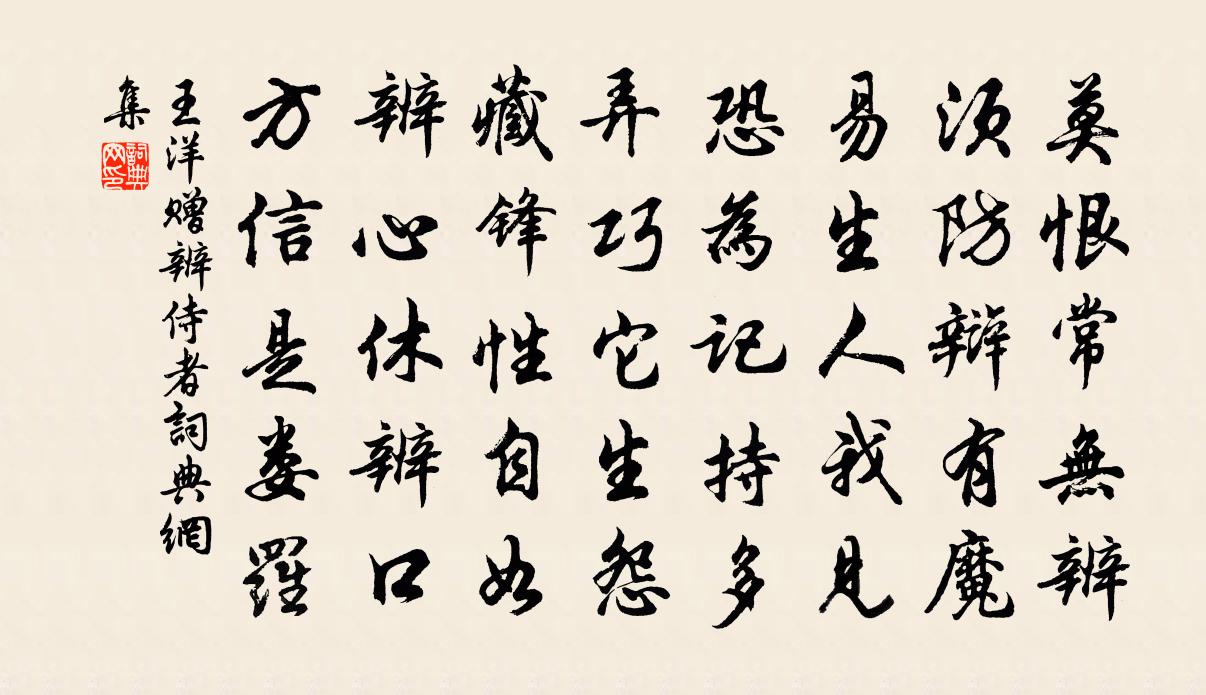 莫恨常無辨
須防辯有魔
易生人我見
恐為記持多
弄巧它生怨
藏鋒性自如
辨心休辨口
方信是婁羅
王洋赠辨侍者詞典網
集
詞典網印